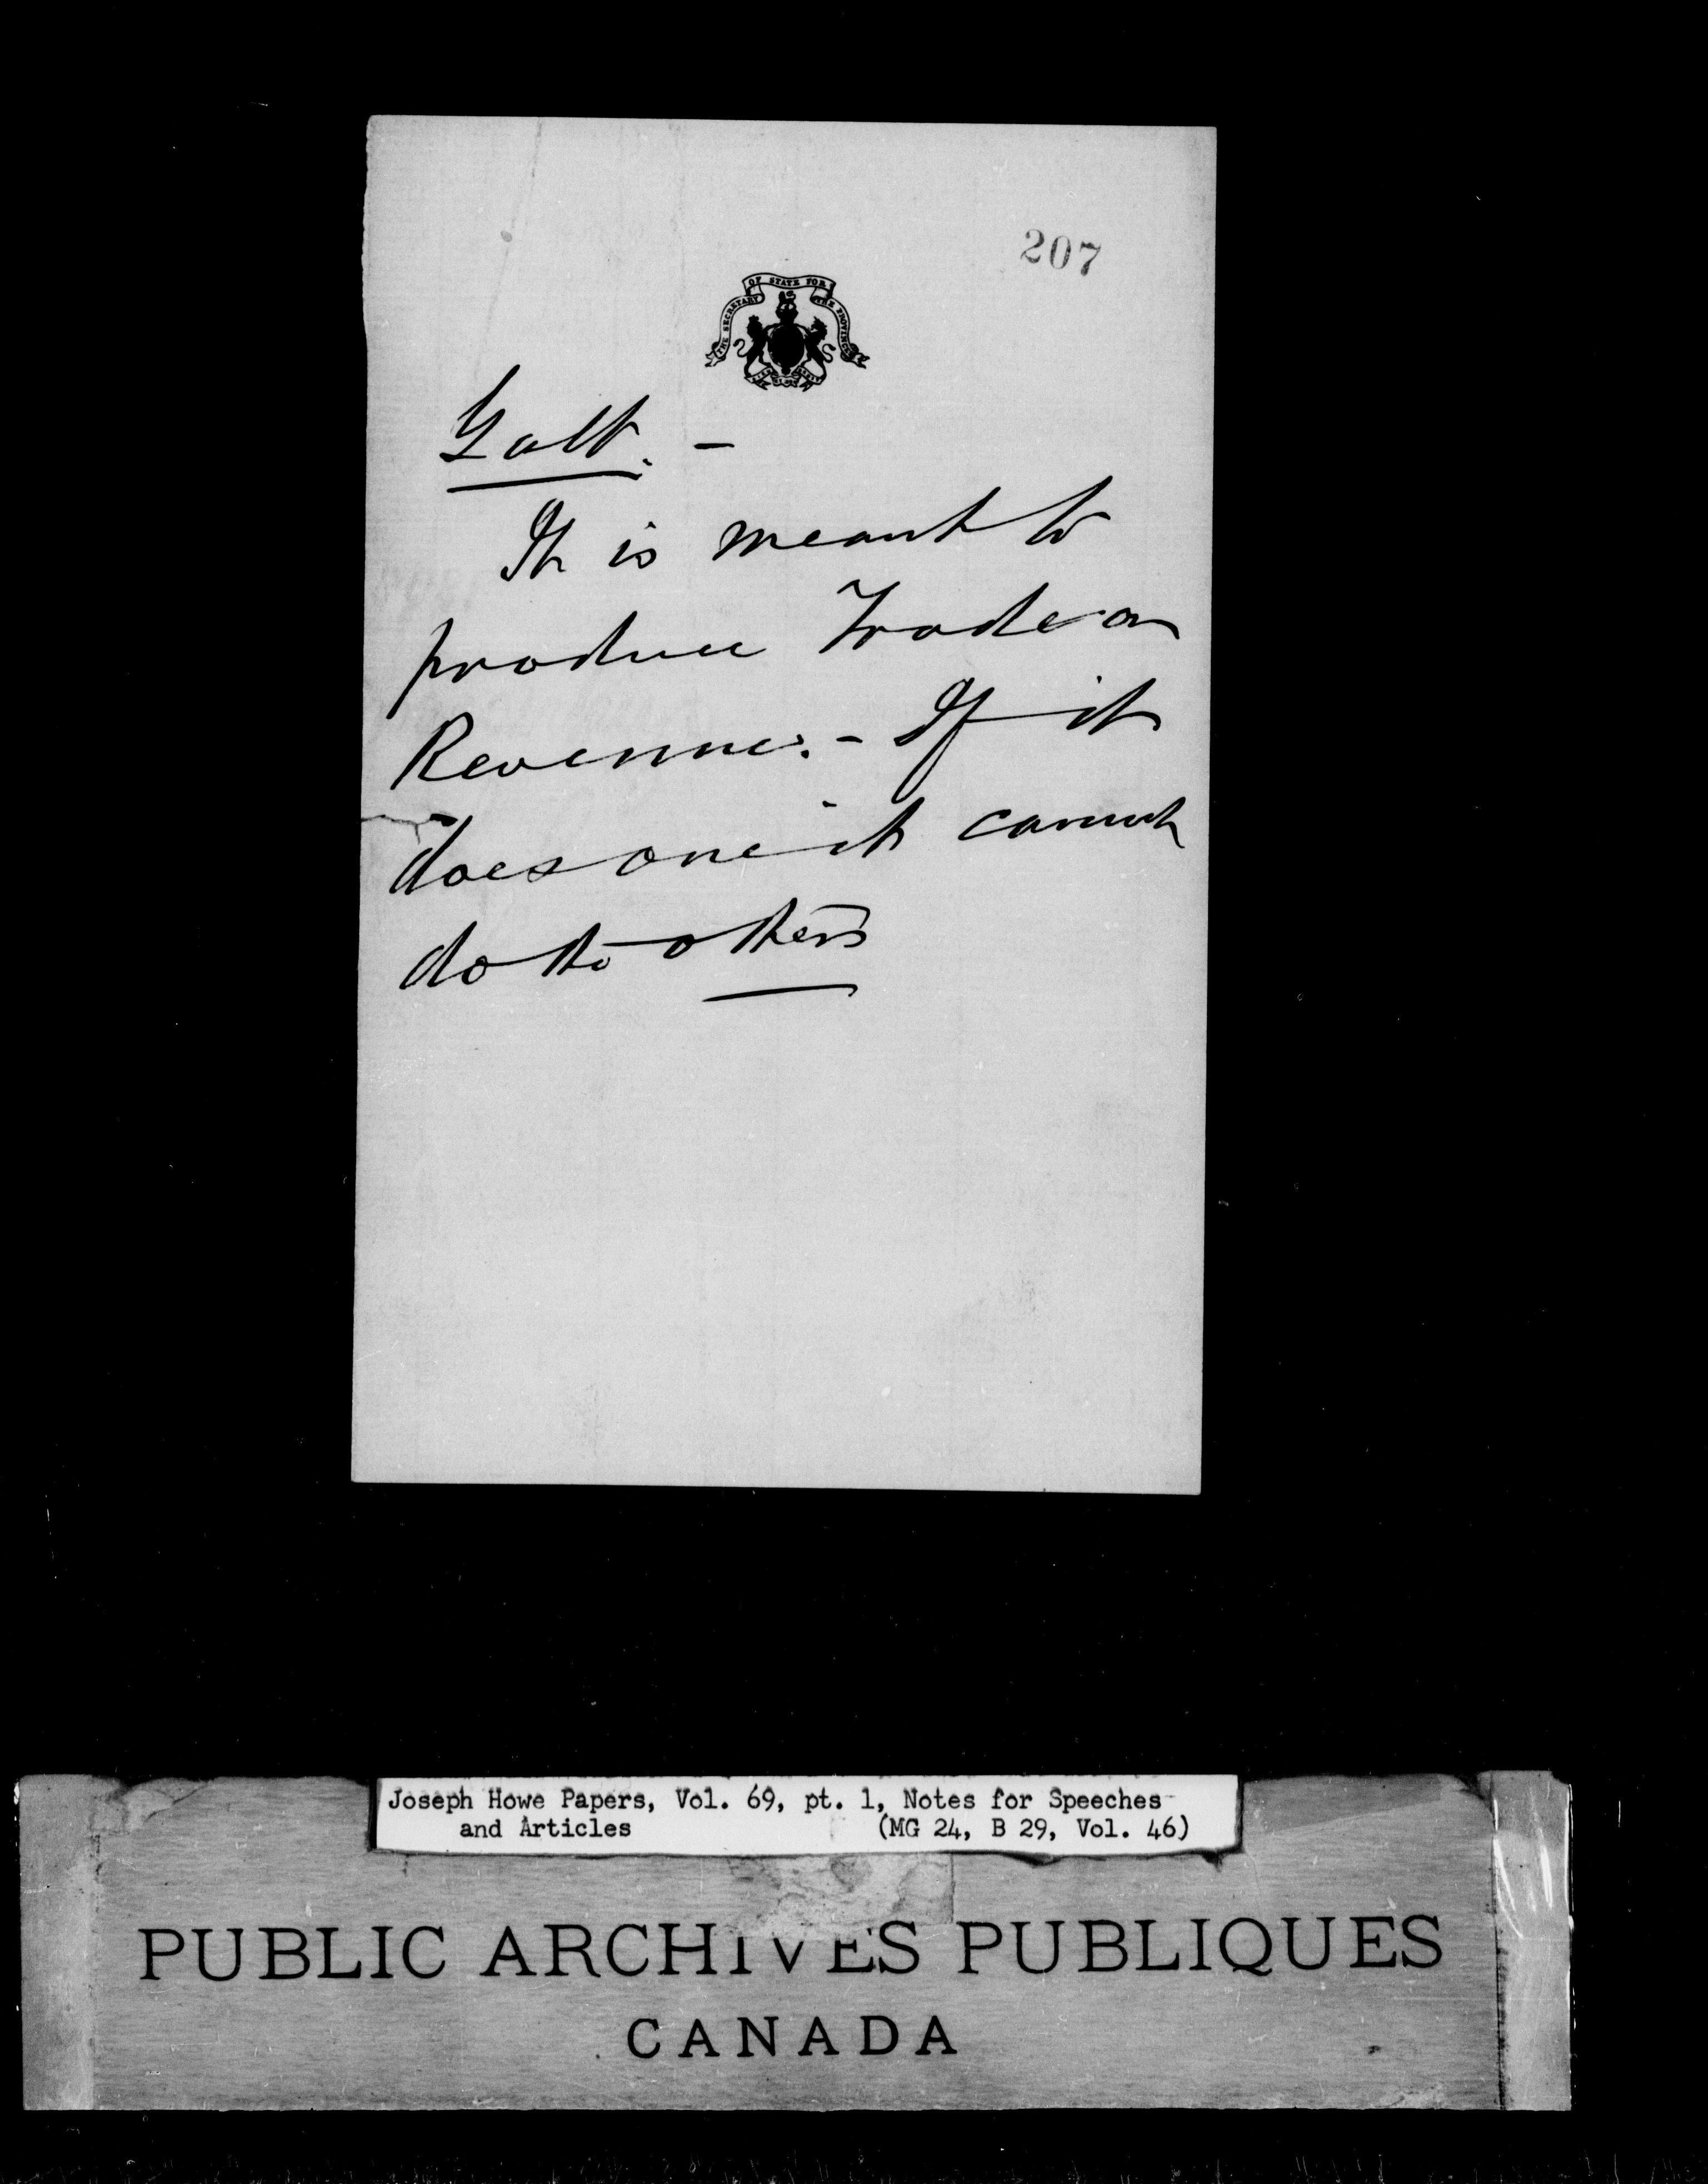 207
THE SECRETARY OF STATE FOR THE PROVINCES
Galt. -
It is meant to
produce Trade or
Revenue. - If it
does one it cannot
do the other
Joseph Howe Papers, Vol. 69, pt. 1, Notes for Speeches
and Articles (MG 24, B 29, Vol. 46)
PUBLIC ARCHIVES PUBLIQUES
CANADA